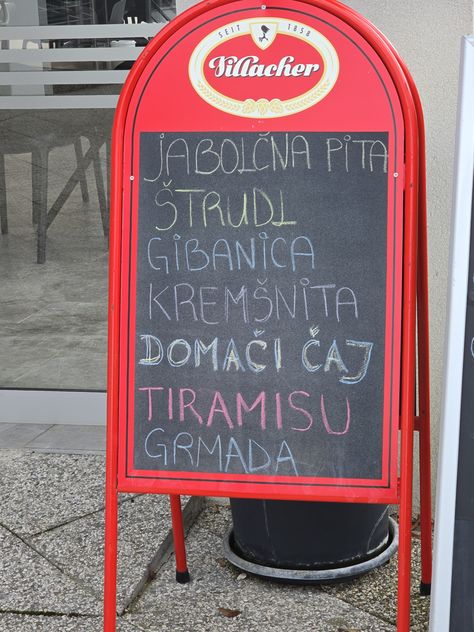 SEIT 1858
Villacher
JABOLČNA PITA
ŠTRUDL
GIBANICA
KREMŠNITA
DOMAČI ČAJ
TIRAMISU
GRMADA